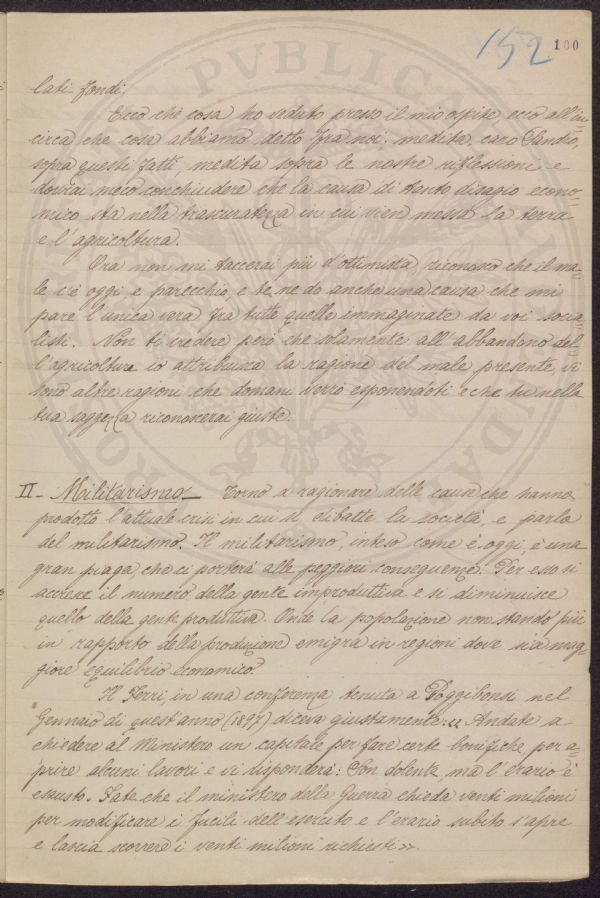 152 100
lati fondi.
Ecco che cosa ho veduto presso il mio ospite, ecco all'in=
circa che cosa abbiamo detto fra noi: medita, caro Sandro,
sopra questi fatti, medita sopra le nostre riflessioni e
dovrai meco conchiudere che la causa di tanto disagio econo=
mico sta nella trascuratezza in cui vien messa la terra
e l'agricoltura.
Ora non mi taccerai più d'ottimista, riconosco che il ma=
le c'è oggi e parecchio, e te ne do anche una causa che mi
pare l'unica vera fra tutte quelle immaginate da voi socia=
listi. Non ti credere però che solamente all'abbandono del=
l'agricoltura io attribuisca la ragione del male presente, vi
sono altre ragioni che domani verrò esponendoti e che tu nella
tua saggezza riconoscerai giuste.
II- Militarismo - Torno a ragionare delle cause che hanno
prodotto l'attuale crisi in cui si dibatte la società, e parlo
del militarismo. Il militarismo, inteso come è oggi, è una
gran piaga, che ci porterà alle peggiori conseguenze. Per esso si
accresce il numero della gente improduttiva e si diminuisce
quello della gente produttiva. Onde la popolazione non stando più
in rapporto della produzione emigra in regioni dove sia mag=
giore equilibrio economico.
Il Ferri, in una conferenza tenuta a Poggibonsi nel
Gennaio di quest'anno (1897) diceva giustamente: « Andate a
chiedere al Ministero un capitale per fare certe bonifiche, per a=
prire alcuni lavori e vi risponderà: Son dolente, ma l'erario è
esausto. Fate che il ministero della Guerra chieda venti milioni
per modificare i fucili dell'esercito e l'erario subito s'apre
e lascia scorrere i venti milioni richiesti ».